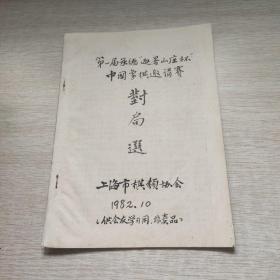 第一届承德"避暑山庄杯"
中国象棋邀请赛
對
局
選
上海市棋类协会
1982.10
(供会友学习用，非卖品)